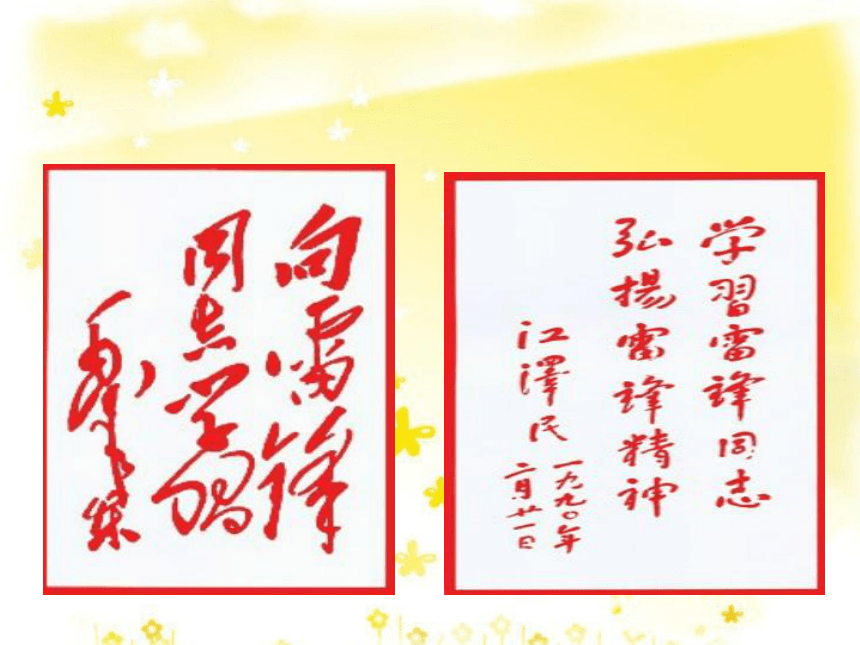 向雷锋
同志学习
毛泽东
学習雷锋同志
弘揚雷锋精神
江澤民
一九九〇年
二月廿一日